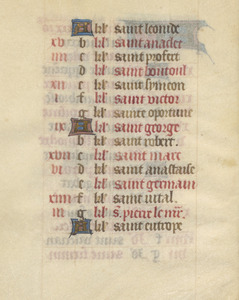 A kł. saint leonide
xv b kł. saint anaclet
iiii c kł. saint profert
d kł. saint boutoul
xii e kł. saint symeon
i f kł. saint victor
g kł. sainte oportune
ix A kł. saint george
b kł. saint robert.
xvii c kł. saint marc
vi d kł. saint anastaise
e kł. saint germain
xiiii f kł. saint vital.
iii g kł. s. pierre le mr.
A kł. saint eutrope